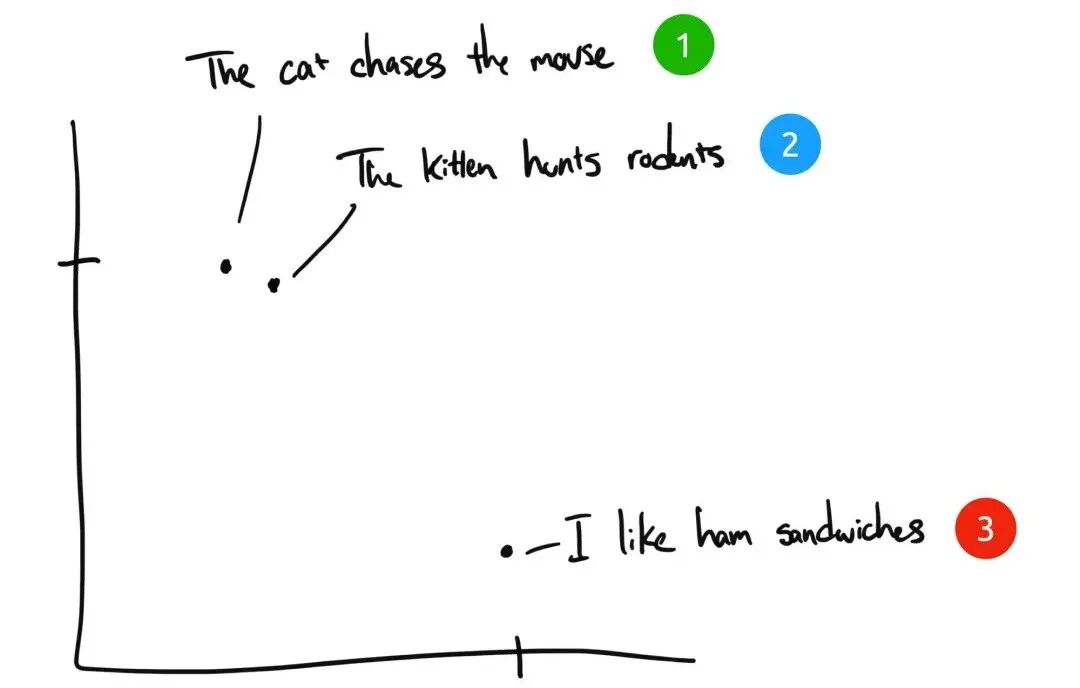 The cat chases the mouse 1
The kitten hunts rodents 2
I like ham sandwiches 3